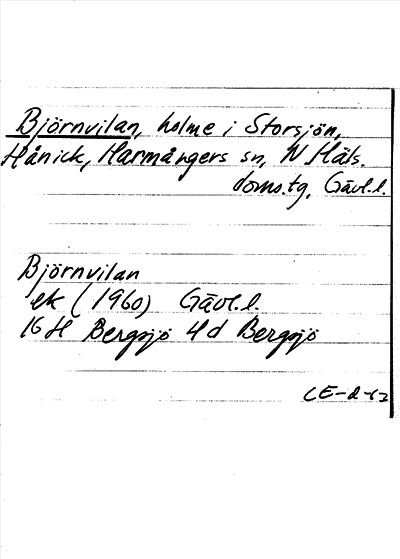 Björnvilan, holme i Storsjön,
Hånick, Harmångers sn, N Häls.
doms.tg, Gävl.l.
Björnvilan
ek (1960) Gävl.l.
16 H Bergsjö 4 d Bergsjö